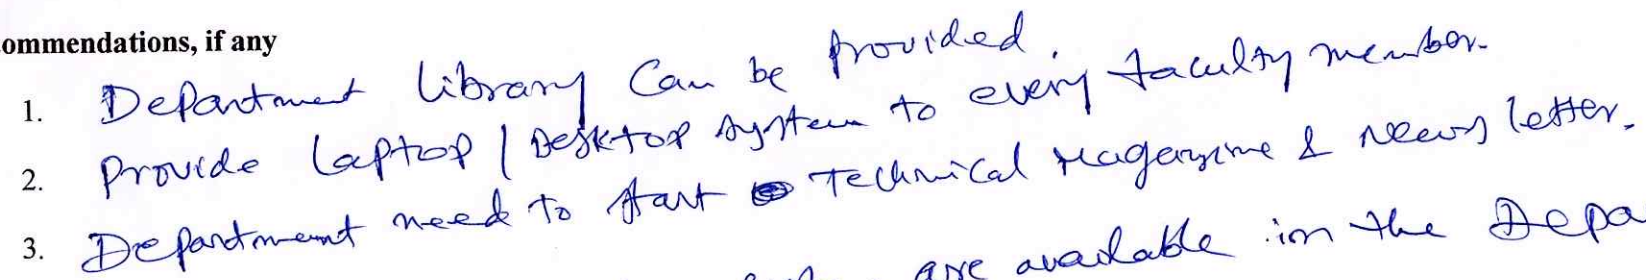 ommendations, if any
1. Department library Can be provided.
2. Provide Laptop / Desktop system to every faculty member.
3. Department need to start Technical Magazine & News letter.
are available in the Depa